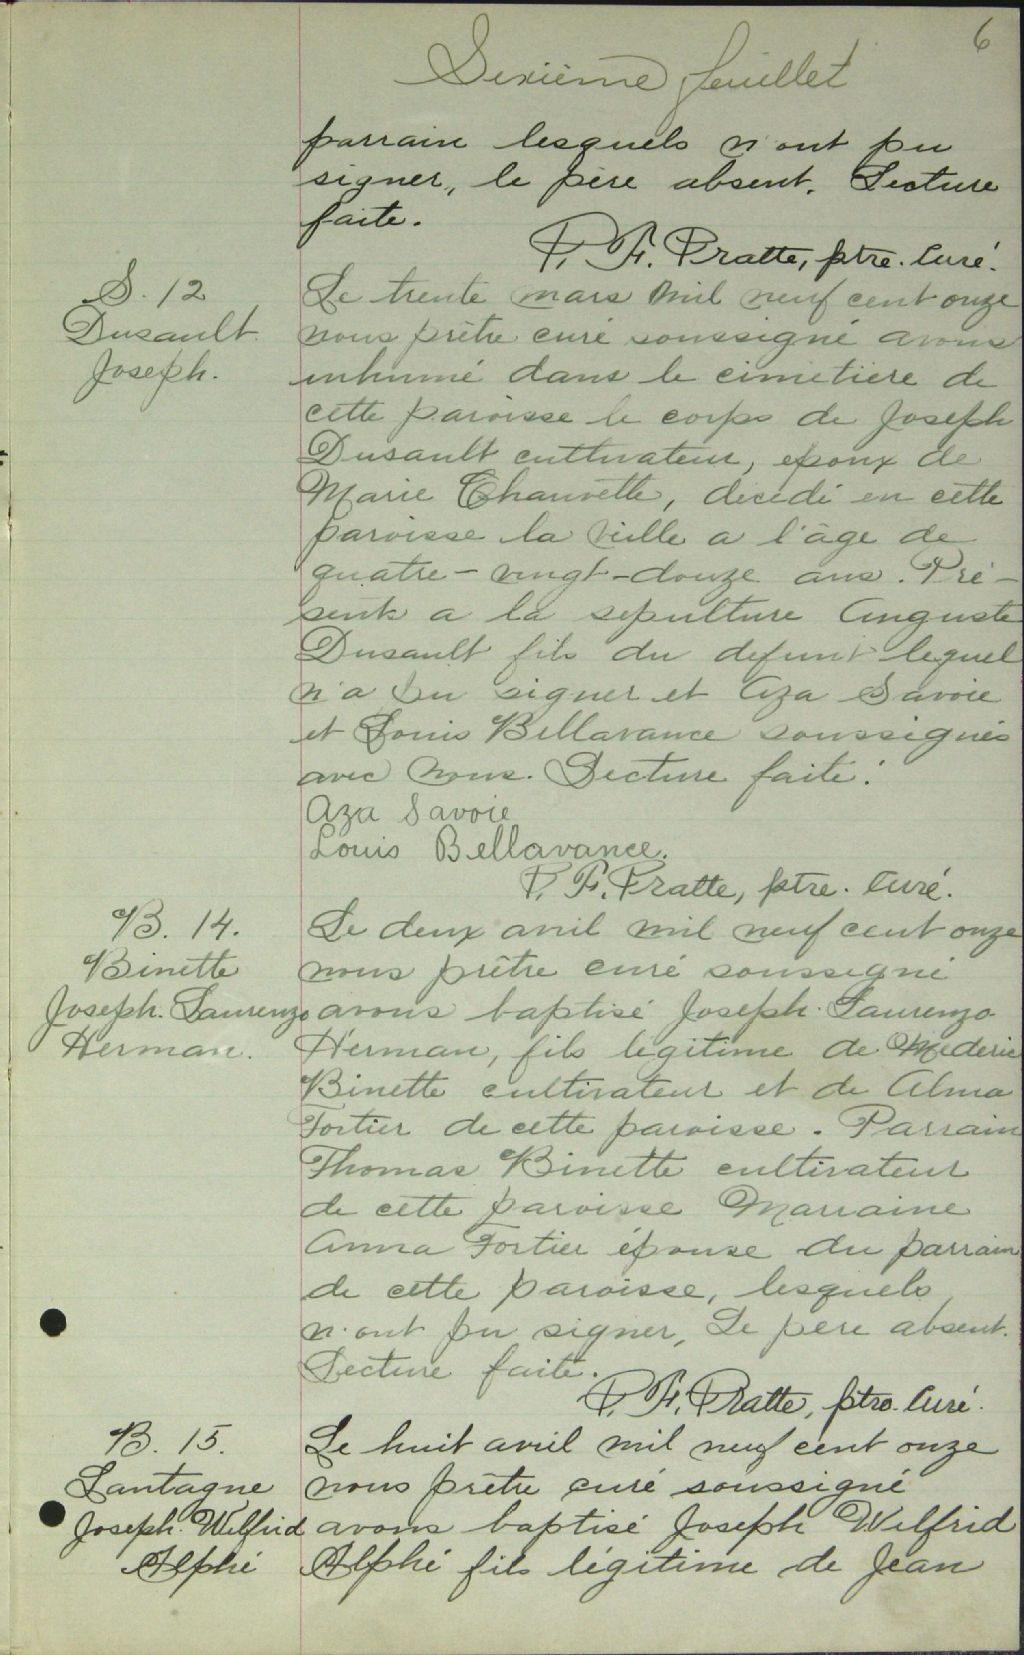 6
Sixième feuillet
parrain lesquels n'ont pu
signer, le père absent. Lecture
faite.
P. F. Pratte, ptre. Curé.
S. 12
Dusault
Joseph.
Le trente mars mil neuf cent onze
nous prêtre curé soussigné avons
inhumé dans le cimetière de
cette paroisse le corps de Joseph
Dusault cultivateur, epoux de
Marie Chauvette, décédé en cette
paroisse la veille a l'âge de
quatre-vingt-douze ans. Pré-
sents a la sepulture Auguste
Dusault fils du defunt lequel
n'a pu signer et Aza Savoie
et Louis Bellavance soussignés
avec nous. Lecture faite.
Aza Savoie
Louis Bellavance.
P. F. Pratte, ptre. Curé.
B. 14.
Binette
Joseph. Laurenzo
Herman.
Le deux avril mil neuf cent onze
nous prêtre curé soussigné
avons baptisé Joseph. Laurenzo
Herman, fils légitime de Mederic
Binette cultivateur et de Alma
Fortier de cette paroisse. Parrain
Thomas Binette cultivateur
de cette paroisse Marraine
Anna Fortier épouse du parrain
de cette paroisse, lesquels
n'ont pu signer, Le père absent.
Lecture faite.
P. F. Pratte, ptre. Curé.
B. 15.
Lantagne
Joseph. Wilfrid
Alphé
Le huit avril mil neuf cent onze
nous prêtre curé soussigné
avons baptisé Joseph Wilfrid
Alphé fils légitime de Jean